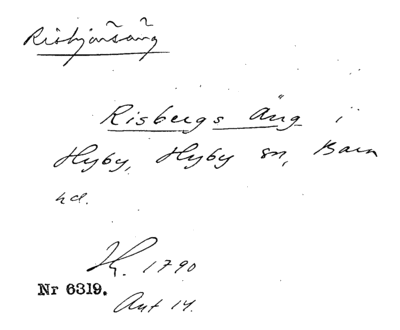 Risbergs Äng i
Hyby, Hyby sn, Bara
hd.
1790
Nr 6319.
Ant 14.